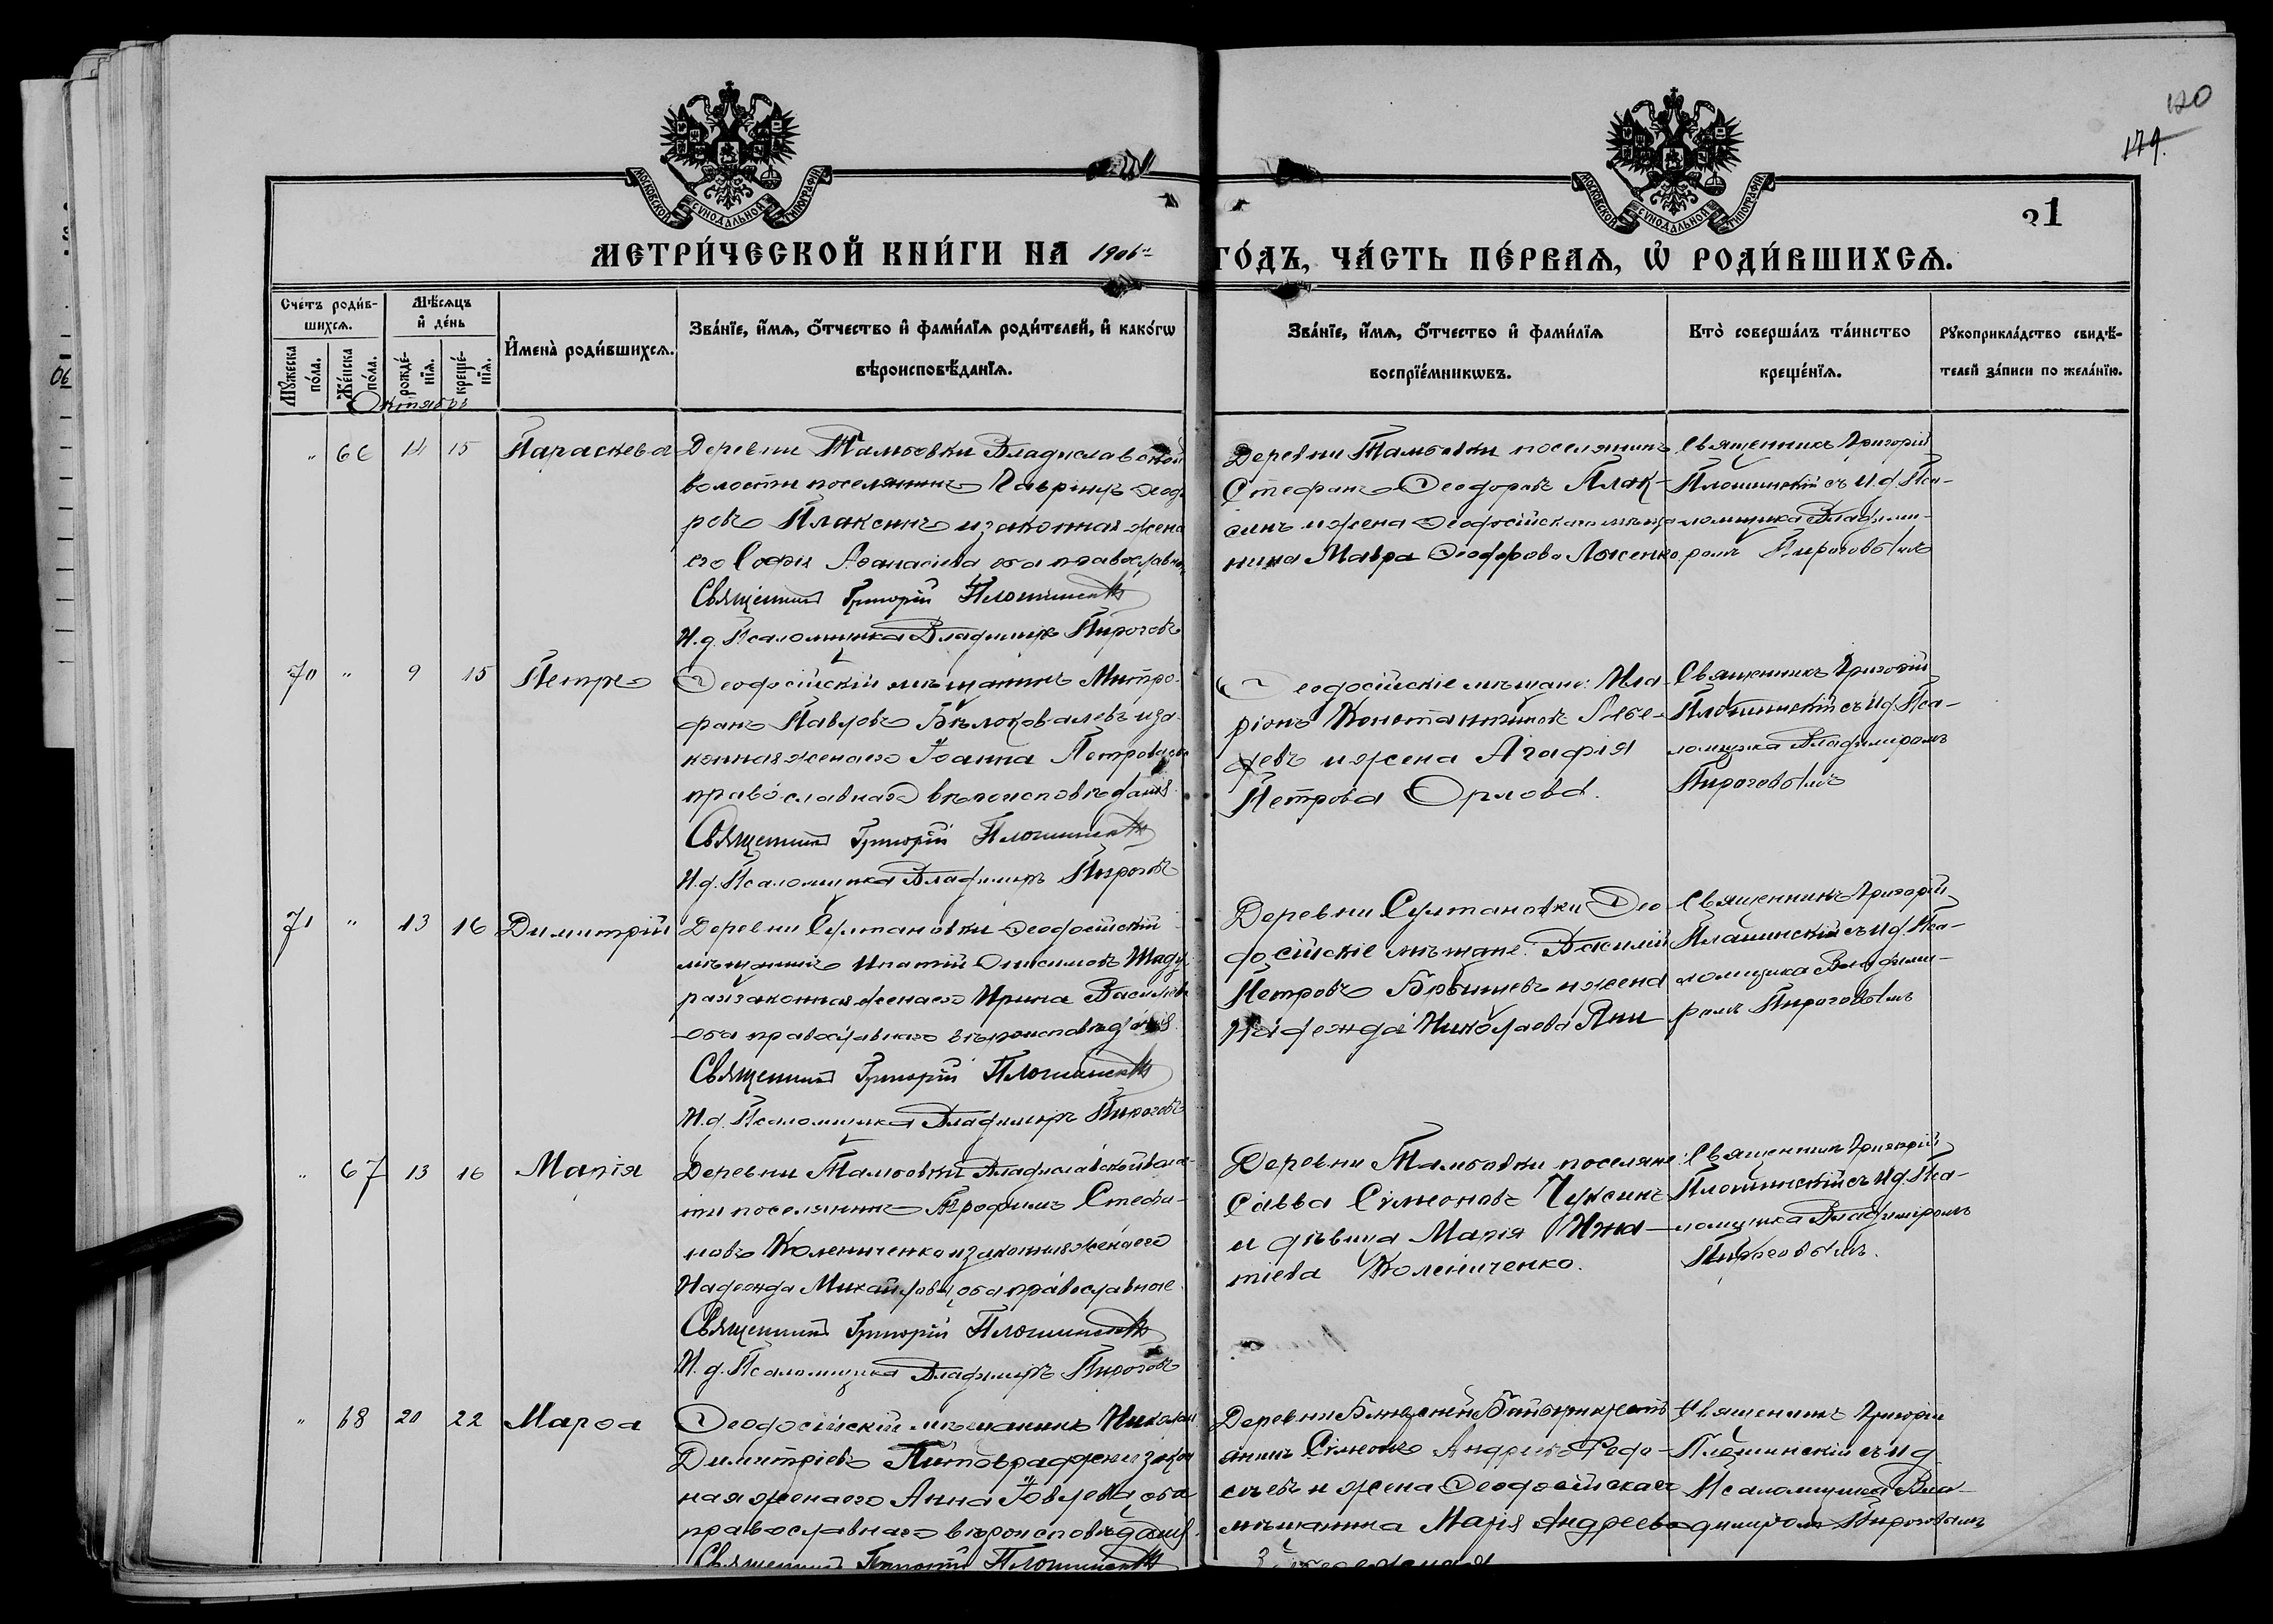 120
179.
МОСКОВСКОЙ СѴНОДАЛЬНОЙ ТИПОГРАФІИ
МОСКОВСКОЙ СѴНОДАЛЬНОЙ ТИПОГРАФІИ
21
МЕТРИ́ЧЕСКОЙ КНИ́ГИ НА 1906
ГО́ДЪ, ЧА́СТЬ ПЕ́РВАѦ, Ѡ҆ РОДИ́ВШИХСѦ.
Сче́тъ роди́в-
шихсѧ.
Мꙋ́жеска по́ла.
Же́нска по́ла.
Мѣ́сѧцъ и҆ де́нь
рожде́-нїѧ.
креще́-нїѧ.
И҆мена̀ роди́вшихсѧ.
Зва́нїе, и҆́мѧ, ѻ҆́тчество и҆ фами́лїѧ роди́телей, и҆ како́гѡ
вѣроисповѣ́данїѧ.
Зва́нїе, и҆́мѧ, ѻ҆́тчество и҆ фами́лїѧ
воспрїе́мникѡвъ.
Кто̀ соверша́лъ та́инство
креще́нїѧ.
Рꙋкоприкла́дство свидѣ́-
телей за́писи по жела́нїю.
Октябрь
" 66 14 15 Параскева
Деревни Тамбовки Владиславской
волости поселянинъ Гавріилъ Ѳеодо
ровъ Плаксинъ и законная жена
его Софія Аѳанасіева оба православн
Священникъ Григорій Плошинскій
И.д. Псаломщика Владиміръ Пироговъ
Деревни Тамбовки поселянинъ
Стефанъ Ѳеодоровъ Плак-
синъ и жена Ѳеодосійскаго мѣща
нина Мавра Ѳеодорова
Священникъ Григорій
Плошинскій съ И.д. Пса-
ломщика Владими-
ромъ Пироговымъ
70 " 9 15 Петръ
Ѳеодосійскій мѣщанинъ Митро-
фанъ Павловъ Бѣлоковалевъ и за-
конная жена его Іоанна Петрова оба
православнаго вѣроисповѣданія.
Священникъ Григорій Плошинскій
И.д. Псаломщика Владиміръ Пироговъ
Ѳеодосійскіе мѣщане: Ила-
ріонъ Константиновъ Лебе-
девъ и жена Агафія
Петрова Орлова.
Священникъ Григорій
Плошинскій съ И.д. Пса-
ломщика Владиміромъ
Пироговымъ
71 " 13 16 Димитрій
Деревни Султановки Ѳеодосійскій
мѣщанинъ Ипатій Онисимовъ
законная жена его Ирина Васильева
оба православнаго вѣроисповѣданія.
Священникъ Григорій Плошинскій
И.д. Псаломщика Владиміръ Пироговъ
Деревни Султановки Ѳео-
досійскіе мѣщане: Василій
Петровъ и жена
Надежда Николаева
Священникъ Григорій
Плошинскій съ И.д. Пса-
ломщика Владими-
ромъ Пироговымъ
" 67 13 16 Марія
Деревни Тамбовки Владиславской воло-
сти поселянинъ Трофимъ Стефа-
новъ Колениченко и законная жена его
Надежда Михайлова, оба православные.
Священникъ Григорій Плошинскій
И.д. Псаломщика Владиміръ Пироговъ
Деревни Тамбовки поселяне:
Савва Симеоновъ Чуксинъ
и дѣвица Марія Игна-
тіева Колениченко.
Священникъ Григорій
Плошинскій съ И.д. Пса-
ломщика Владиміромъ
Пироговымъ.
" 68 20 22 Марѳа
Ѳеодосійскій мѣщанинъ Николай
Димитріевъ и закон
ная жена его Анна Іовлева, оба
православнаго вѣроисповѣданія.
Священникъ Григорій Плошинскій
Деревни
Симеонъ Андреевъ Федо-
сѣевъ и жена Ѳеодосійскаго
мѣщанина Марія Андреева
Священникъ Григорій
Плошинскій съ И.д.
Псаломщика Вла-
диміромъ Пироговымъ